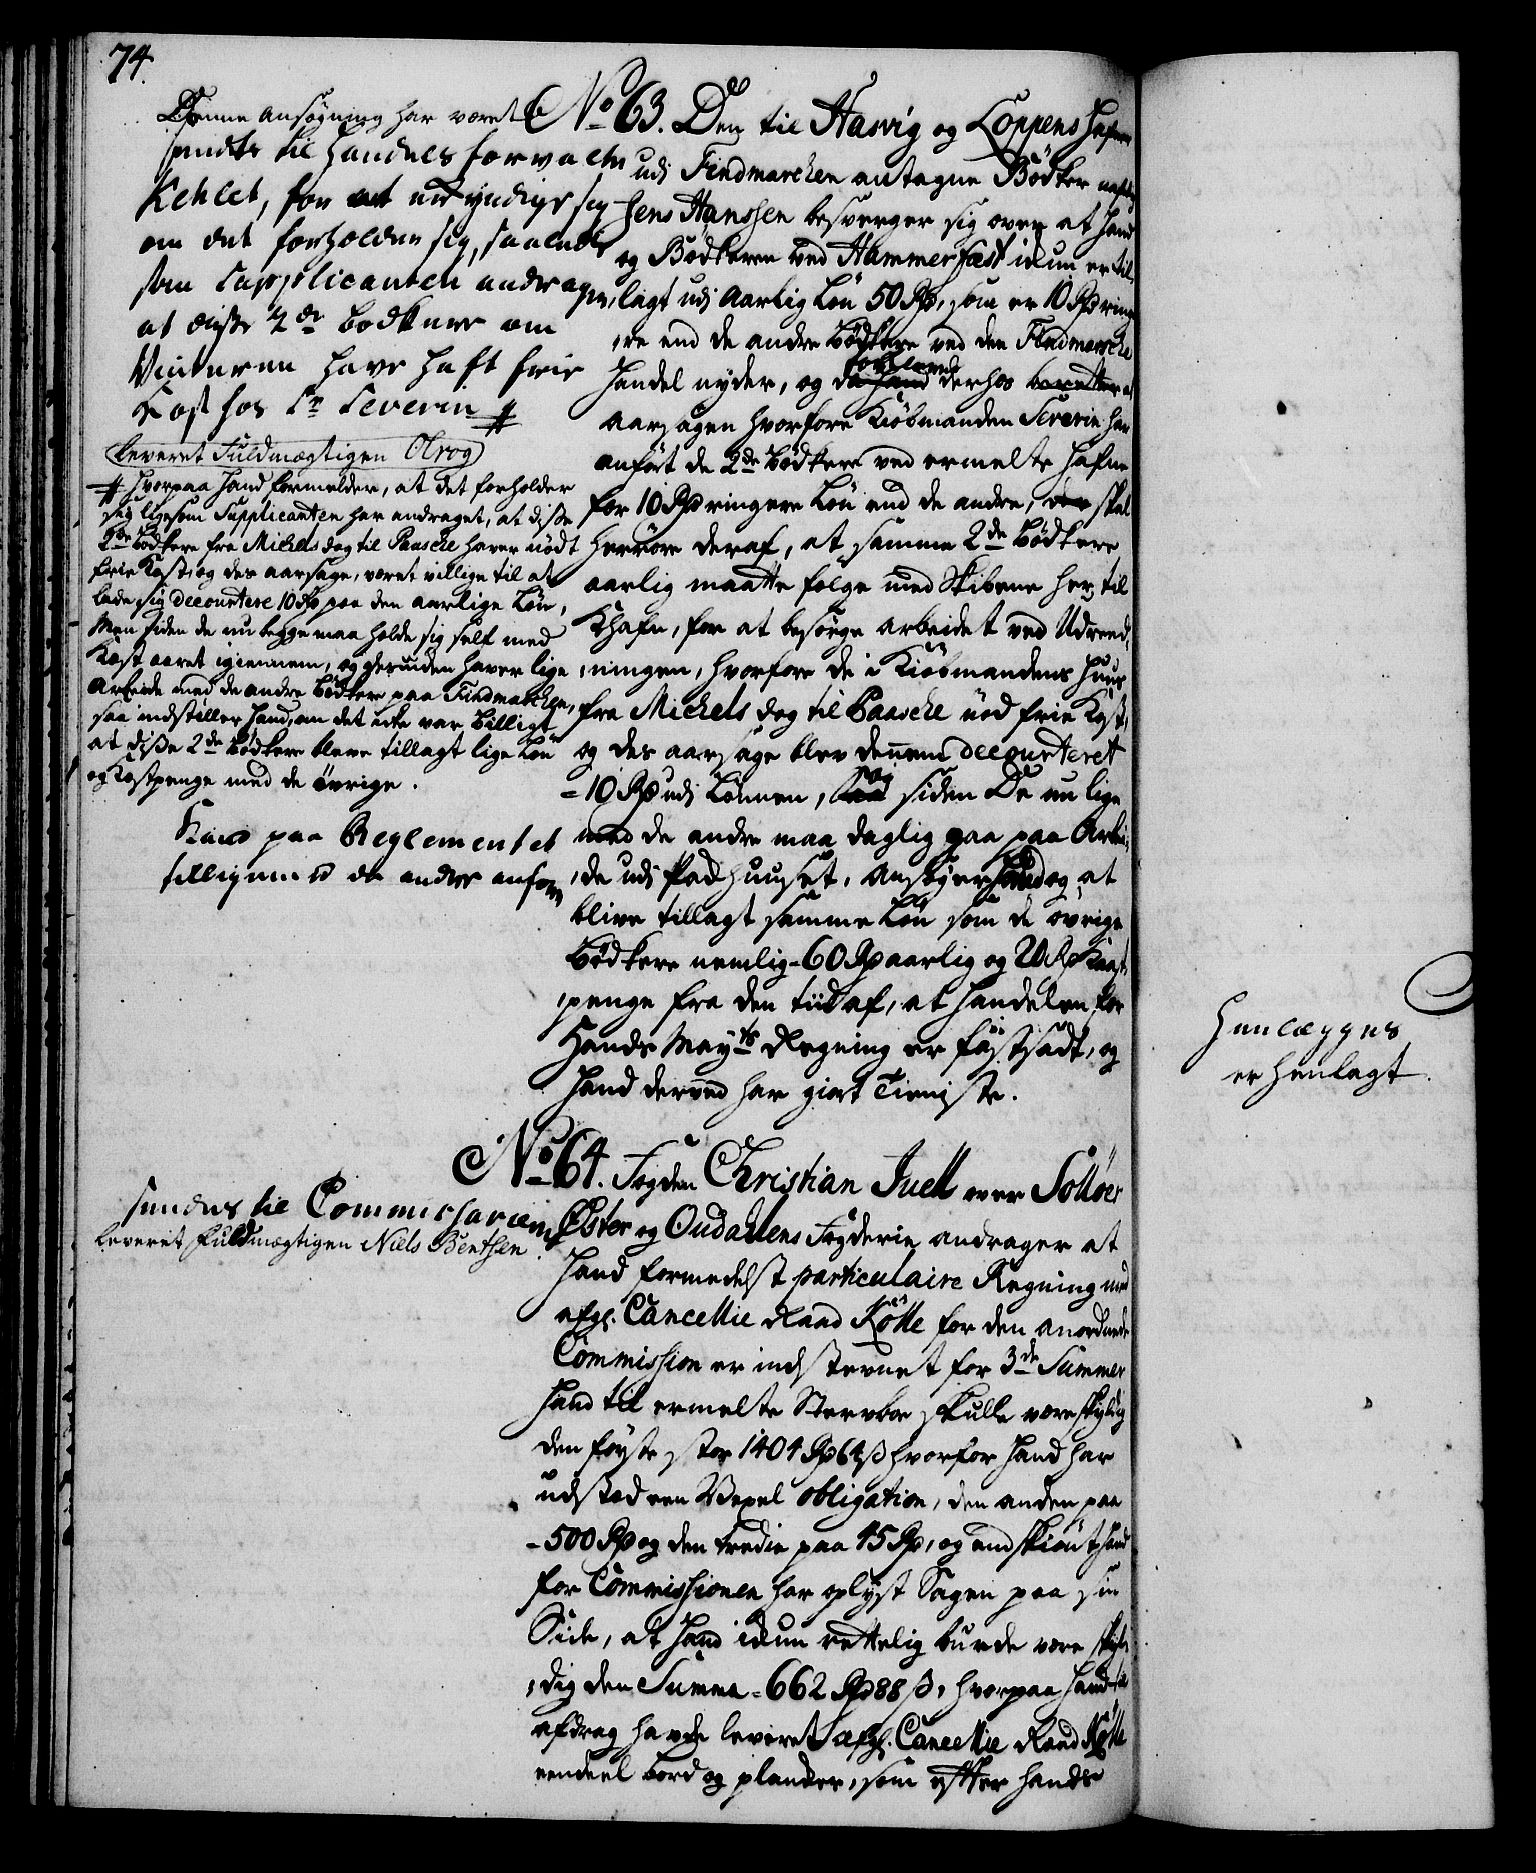 74.
Denne ansøgning har været
sendt til Handels forvalter
Kehlet, for at udtyndige sig
om det forholder sig, saaledes
som Supplicanten andrager,
at disse 2de Bødkere om
Vinteren have haft frie
Kost hos Sr Severin #
Leveret Fuldmægtigen Olrog
# Hvorpaa Hand formelder, at det forholder
sig ligesom Supplicanten har andraget, at disse
2de Bødkere fra Michels dag til Paasche haver nødt
frie Kost, og des aarsage, været villige til at
lade sig decourtere 10 Rd paa den aarlige Løn,
Men siden de nu begge maa holde sig self med
Kost aaret igiennem, og desuden haver lige
Arbeide med de andre Bødkere paa Findmarchen,
saa indstiller Hand, om det icke var billigt
at disse 2de Bødkere bleve tillagt lige Løn
og Kostpenge med de øvrige.
paa Reglementet
tilligemed de andre anføres
No 63. Den til Hasvig og Loppens Hafne
udi Findmarchen antagne Bødker nafnlig
Jens Hanssen besverger sig over at Hand
og Bødkeren ved Hammerfæst ickun er til,
lagt udi Aarlig Løn 50 Rd, som er 10 Rd ring
,re end de andre Bødkere ved den Findmarche
Handel nyder, og da Hand derhos beretter at
forklarer
aarsagen hvorfore Kiøbmanden Severin har
anført de 2de Bødkere ved ermelte Hafne
for 10 Rd ringere Løn end de andre, der skal
herrøre deraf, at samme 2de Bødkere
aarlig maatte følge med Skibene her til
Khafn, for at besørge arbeidet ved Udreed,
,ningen, hvorfore de i Kiøbmandens Huus
fra Michels dag til Paasche nød frie Kost,
og des aarsage blev dennem decourteret
- 10 Rd udi Lønnen, Saa og siden De nu lige
med de andre maa daglig gaa paa Arbei,
,de udi Padhuuset, Ansøger Hand og at
blive tillagt samme Løn som de øvrige
Bødkere nemlig - 60 Rd aarlig og 20 Rd Kaast,
,penge fra den tiid af, at Handelen for
Hands Mayts Regning er fastsadt, og
Hand derved har giort Tieniste.
Henlægges
er henlagt.
No 64. Fogden Christian Juell over Solløer
Øster og Oudahlens Fogderie andrager at
Hand formedelst particulaire Regning med
afgl. Cancellie Raad Kølle for den anordnede
Commission er indstevnet for 3de Summer
Hand til ermelte Stervboe skulle være skyldig
den første stor 1404 Rd 64 ß hvorfor Hand har
udstæd een Vexel obligation, den anden paa
- 500 Rd og den tredie paa 45 Rd, og endskiønt Hand
for Commissionen har oplyst Sagen paa sin
Side, at Hand ickun rettelig burde være skyl,
,dig den Summa - 662 Rd 88 ß, hvorpaa Hand til
afdrag havde leveret afgl. Cancellie Raad Kølle
eendeel bord og plancker, som efter Hands
sendes til Commissarierne
Leveret Fuldmægtigen Niels Bentsen.